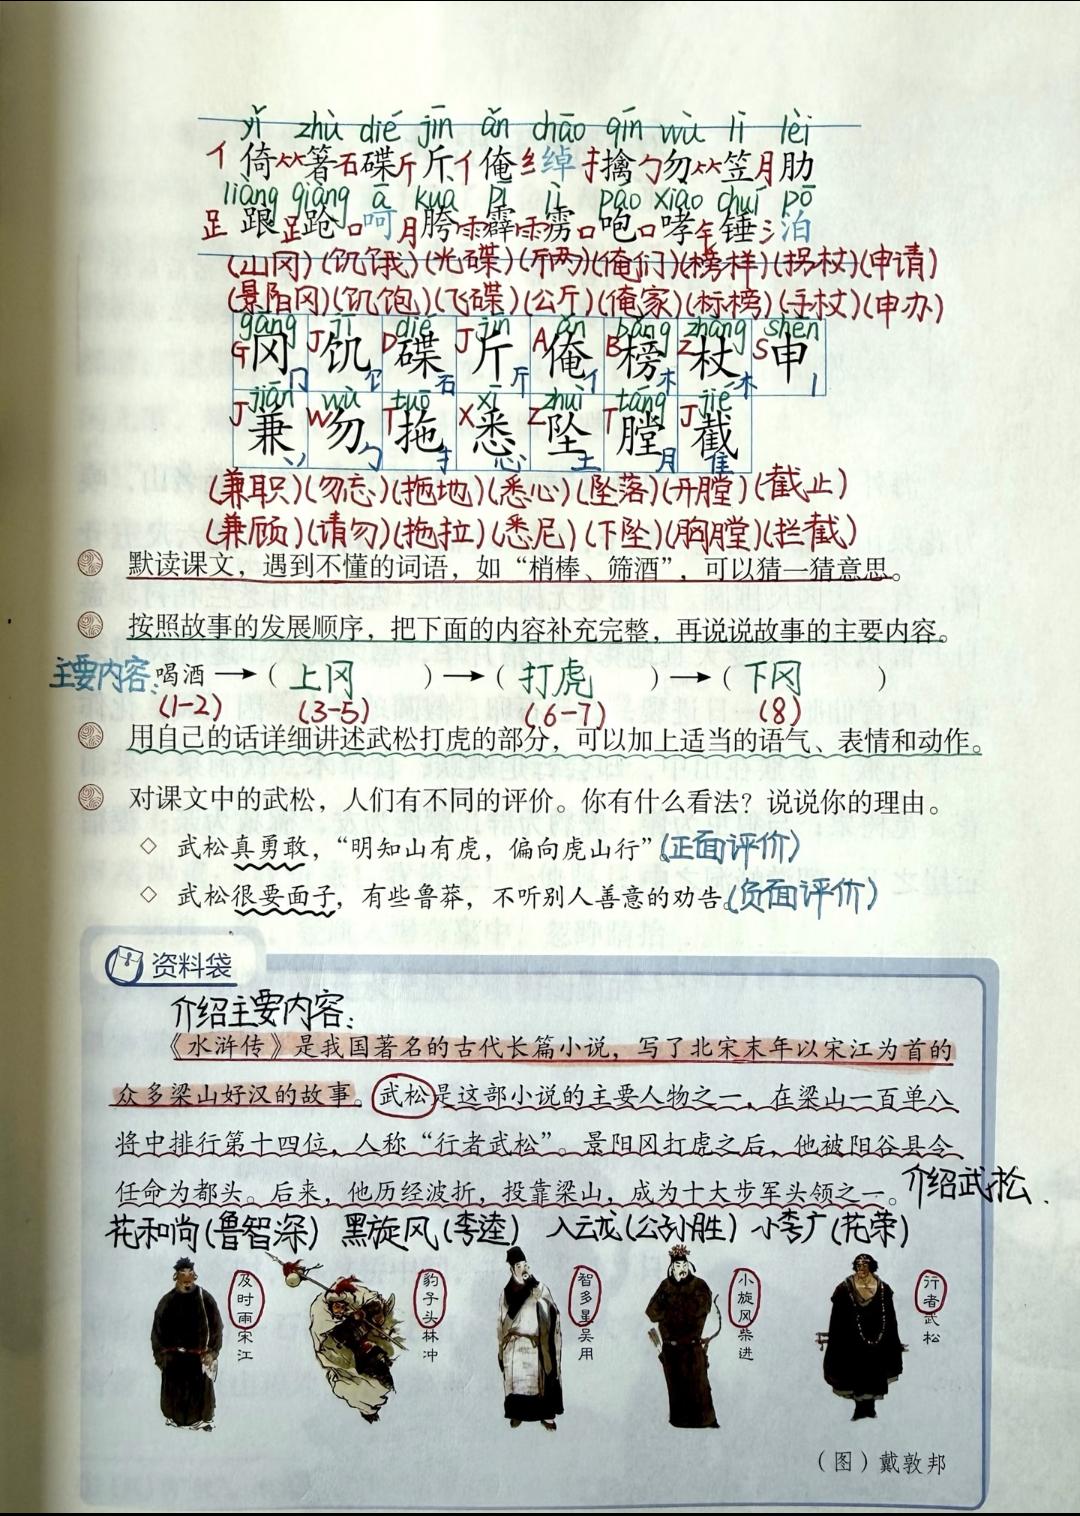 yǐ zhù dié jīn ǎn chāo qín wù lì lèi
亻倚⺮箸石碟斤斤亻俺纟绰扌擒勹勿⺮笠月肋
liàng qiàng ā kuà pī lì páo xiào chuí pō
足踉足跄口呵月胯雨霹雨雳口咆口哮钅锤氵泊
(山冈)(饥饿)(光碟)(斤两)(俺们)(榜样)(拐杖)(申请)
(景阳冈)(饥饱)(飞碟)(公斤)(俺家)(标榜)(手杖)(申办)
gāng jī dié jīn ǎn bǎng zhàng shēn
G冈冂 J饥饣 D碟石 J斤斤 A俺亻 B榜木 Z杖木 S申丨
jiān wù tuō xī zhuì táng jié
J兼丷 W勿勹 T拖扌 X悉心 Z坠土 T膛月 J截隹
(兼职)(勿忘)(拖地)(悉心)(坠落)(开膛)(截止)
(兼顾)(请勿)(拖拉)(悉尼)(下坠)(胸膛)(拦截)
默读课文，遇到不懂的词语，如“梢棒、筛酒”，可以猜一猜意思。
按照故事的发展顺序，把下面的内容补充完整，再说说故事的主要内容。
主要内容：喝酒→（上冈）→（打虎）→（下冈）
(1-2) (3-5) (6-7) (8)
用自己的话详细讲述武松打虎的部分，可以加上适当的语气、表情和动作。
对课文中的武松，人们有不同的评价。你有什么看法？说说你的理由。
◇ 武松真勇敢，“明知山有虎，偏向虎山行”。(正面评价)
◇ 武松很要面子，有些鲁莽，不听别人善意的劝告。(负面评价)
资料袋
介绍主要内容：
《水浒传》是我国著名的古代长篇小说，写了北宋末年以宋江为首的
众多梁山好汉的故事。武松是这部小说的主要人物之一，在梁山一百单八
将中排行第十四位，人称“行者武松”。景阳冈打虎之后，他被阳谷县令
任命为都头。后来，他历经波折，投靠梁山，成为十大步军头领之一。介绍武松.
花和尚(鲁智深) 黑旋风(李逵) 入云龙(公孙胜) 小李广(花荣)
及时雨宋江
豹子头林冲
智多星吴用
小旋风柴进
行者武松
（图）戴敦邦